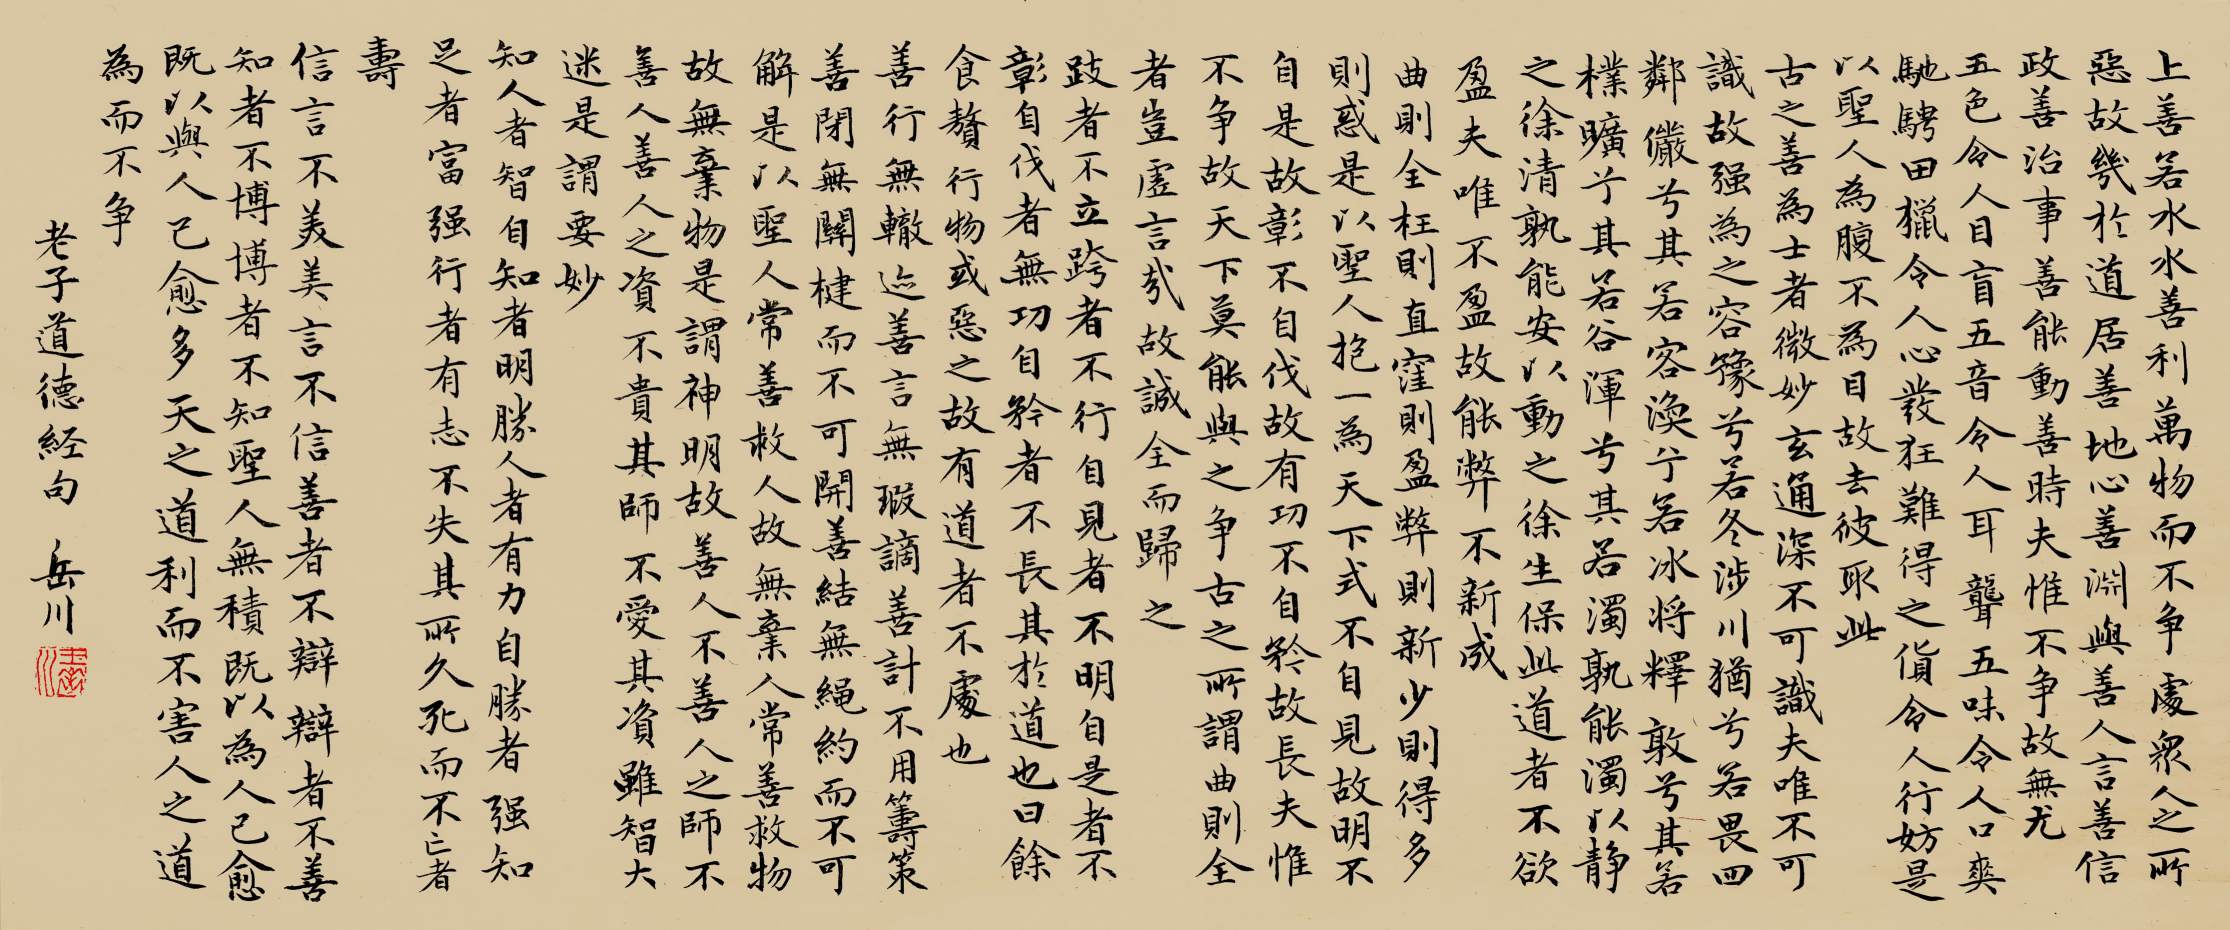 上善若水水善利萬物而不争處眾人之所
惡故幾於道居善地心善淵與善人言善信
政善治事善能動善時夫惟不争故無尤
五色令人目盲五音令人耳聾五味令人口爽
馳騁田獵令人心發狂難得之貨令人行妨是
以聖人為腹不為目故去彼取此
古之善為士者微妙玄通深不可識夫唯不可
識故强為之容豫兮若冬涉川猶兮若畏四
鄰儼兮其若容渙兮若冰将釋敦兮其若
樸曠兮其若谷渾兮其若濁孰能濁以静
之徐清孰能安以動之徐生保此道者不欲
盈夫唯不盈故能弊不新成
曲則全枉則直窪則盈弊則新少則得多
則惑是以聖人抱一為天下式不自見故明不
自是故彰不自伐故有功不自矜故長夫惟
不争故天下莫能與之争古之所謂曲則全
者豈虚言哉故誠全而歸之
跂者不立跨者不行自見者不明自是者不
彰自伐者無功自矜者不長其於道也曰餘
食贅行物或惡之故有道者不處也
善行無轍迹善言無瑕謫善計不用籌策
善閉無關楗而不可開善結無繩約而不可
解是以聖人常善救人故無棄人常善救物
故無棄物是謂神明故善人不善人之師不
善人善人之資不貴其師不愛其資雖智大
迷是謂要妙
知人者智自知者明勝人者有力自勝者强知
足者富强行者有志不失其所久死而不亡者
壽
信言不美美言不信善者不辯辯者不善
知者不博博者不知聖人無積既以為人己愈
既以與人己愈多天之道利而不害人之道
為而不争
老子道德経句 岳川